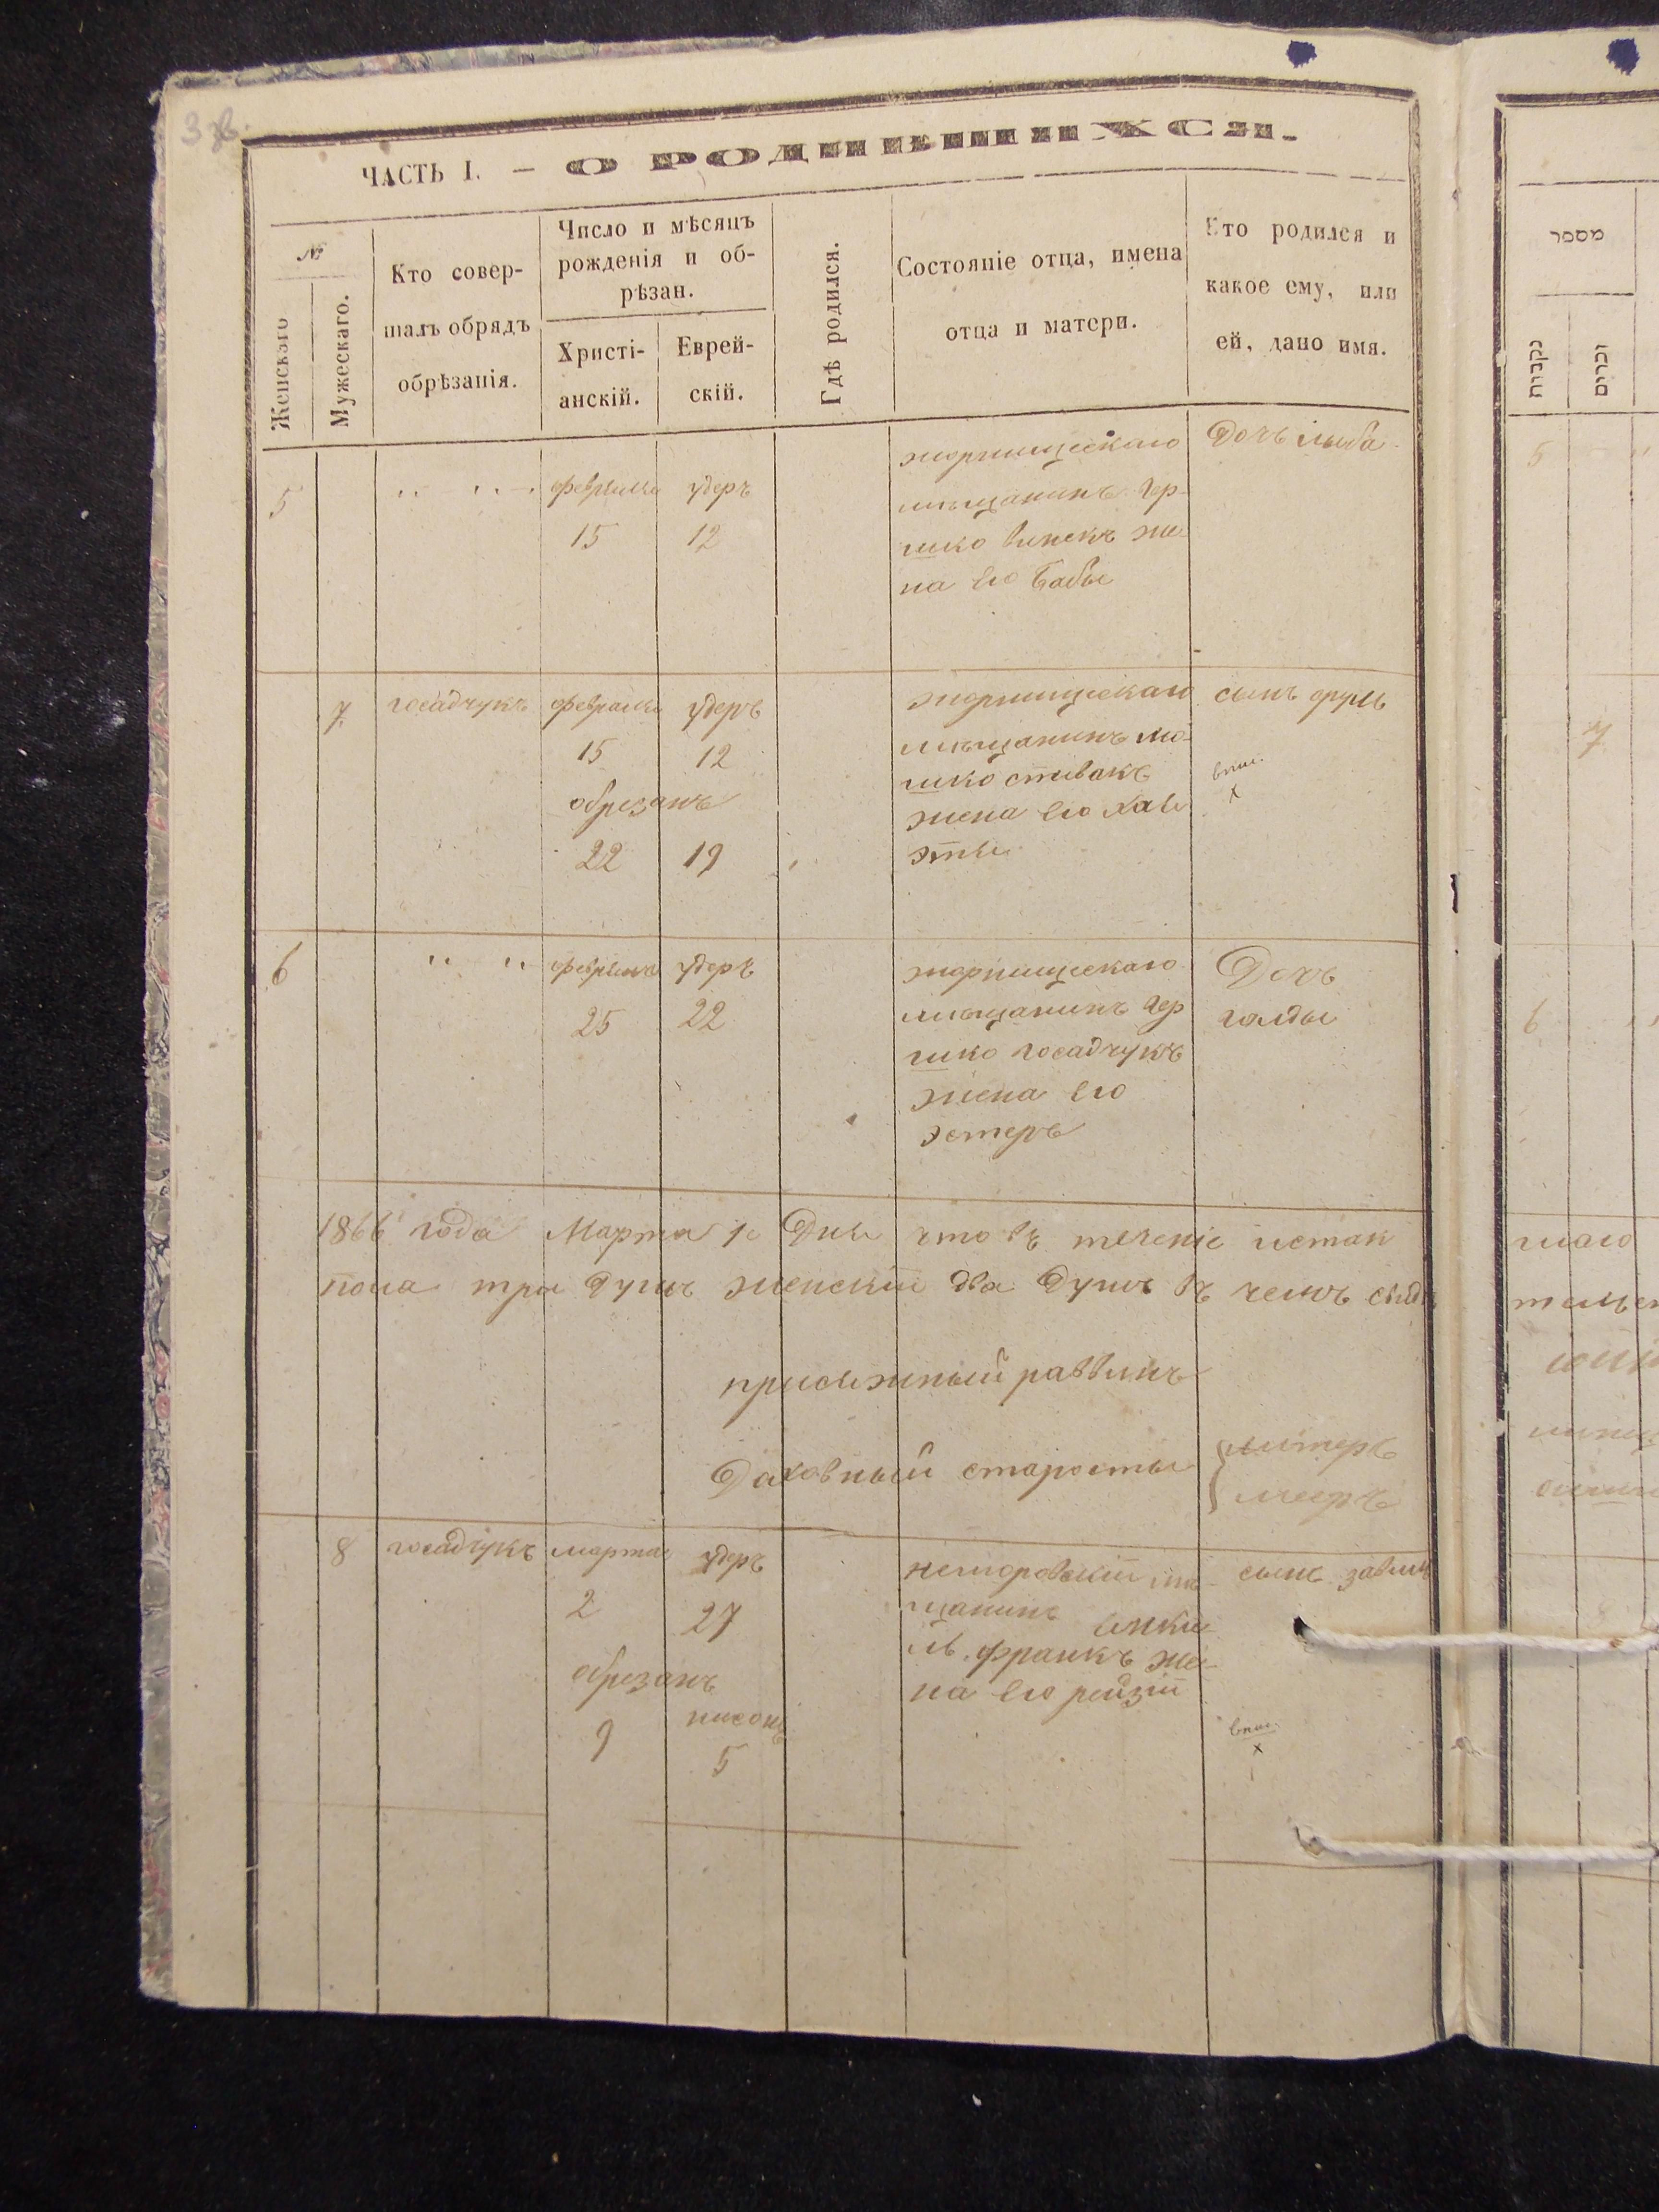 3 зв.
ЧАСТЬ I. — О РОДИВШИХСЯ.
№
Женскаго
Мужескаго.
Кто совер-
шалъ обрядъ
обрѣзанія.
Число и мѣсяцъ
рожденія и об-
рѣзан.
Христі-
анскій.
Еврей-
скій.
Гдѣ родился.
Состояніе отца, имена
отца и матери.
Кто родился и
какое ему, или
ей, дано имя.
מספר
נקבות
זכרים
5
февраля
15
удеръ
12
жорнищскаго
мещанинъ Гер-
шко жe-
на его Бабы
Дочь
5
7
госадчукъ
февраля
15
обрезанъ
22
удеръ
12
19
жорнищскаго
мещанинъ мо-
шко спивакъ
жена его хая
эты
сынъ сруль
впис.
х
7
6
февраля
25
удеръ
22
жорнищскаго
мещанинъ Гер
шко госадчукъ
жена его
эстеръ
Дочь
голды
6
1866 года Марта 1 Дня что въ теченіе истек
пола три душъ женскій два душъ въ чемъ свид
присяжный раввинъ
Даховный старосты
8
госадчукъ
марта
2
обрезанъ
9
удеръ
27
нисонъ
5
немировскій мѣ-
щанинъ янки
ль франкъ же-
на его рейзи
сынъ
впис.
х